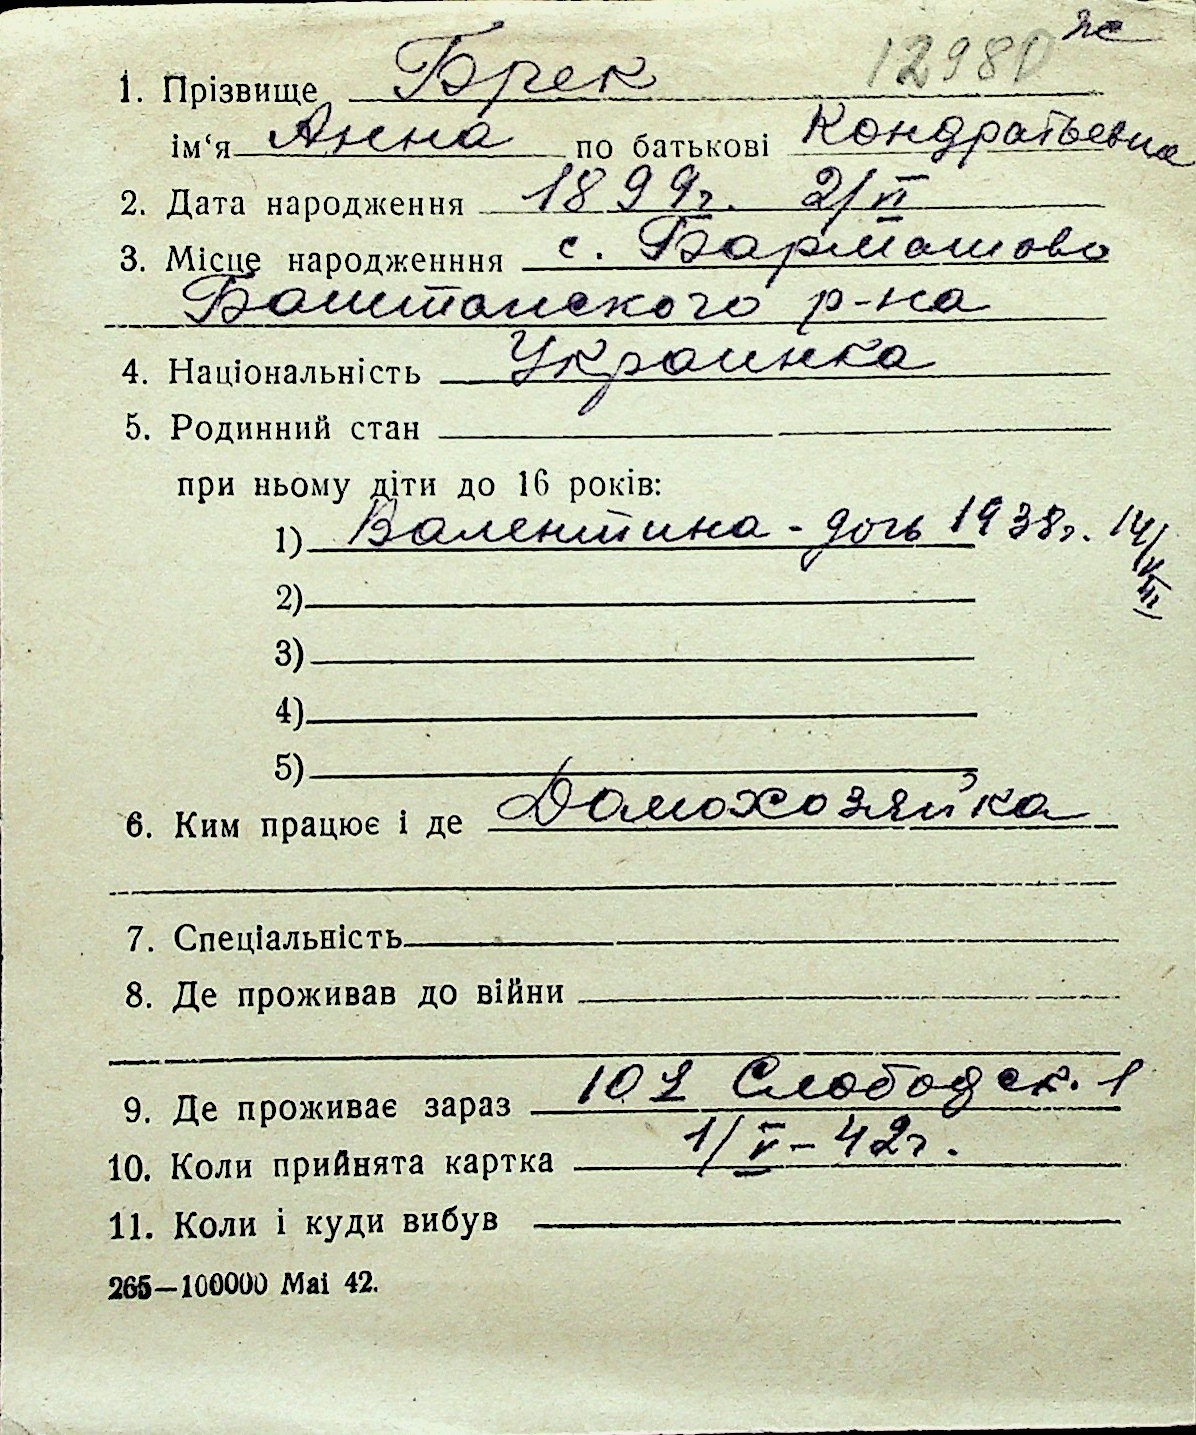 12980 ж
1. Прізвище Брек
ім‘я Анна по батькові Кондратьевна
2. Дата народження 1899г. 2/VI
3. Місце народженння с. Бармашово
Баштанского р-на
4. Національність Украинка
5. Родинний стан
при ньому діти до 16 років:
1) Валентина - дочь 1938г. 14/VIII
2)
3)
4)
5)
6. Ким працює і де Домохозяйка
7. Спеціальність
8. Де проживав до війни
9. Де проживає зараз Слободск. 1
10. Коли прийнята картка 1/V-42г.
11. Коли і куди вибув
265—100000 Mai 42.